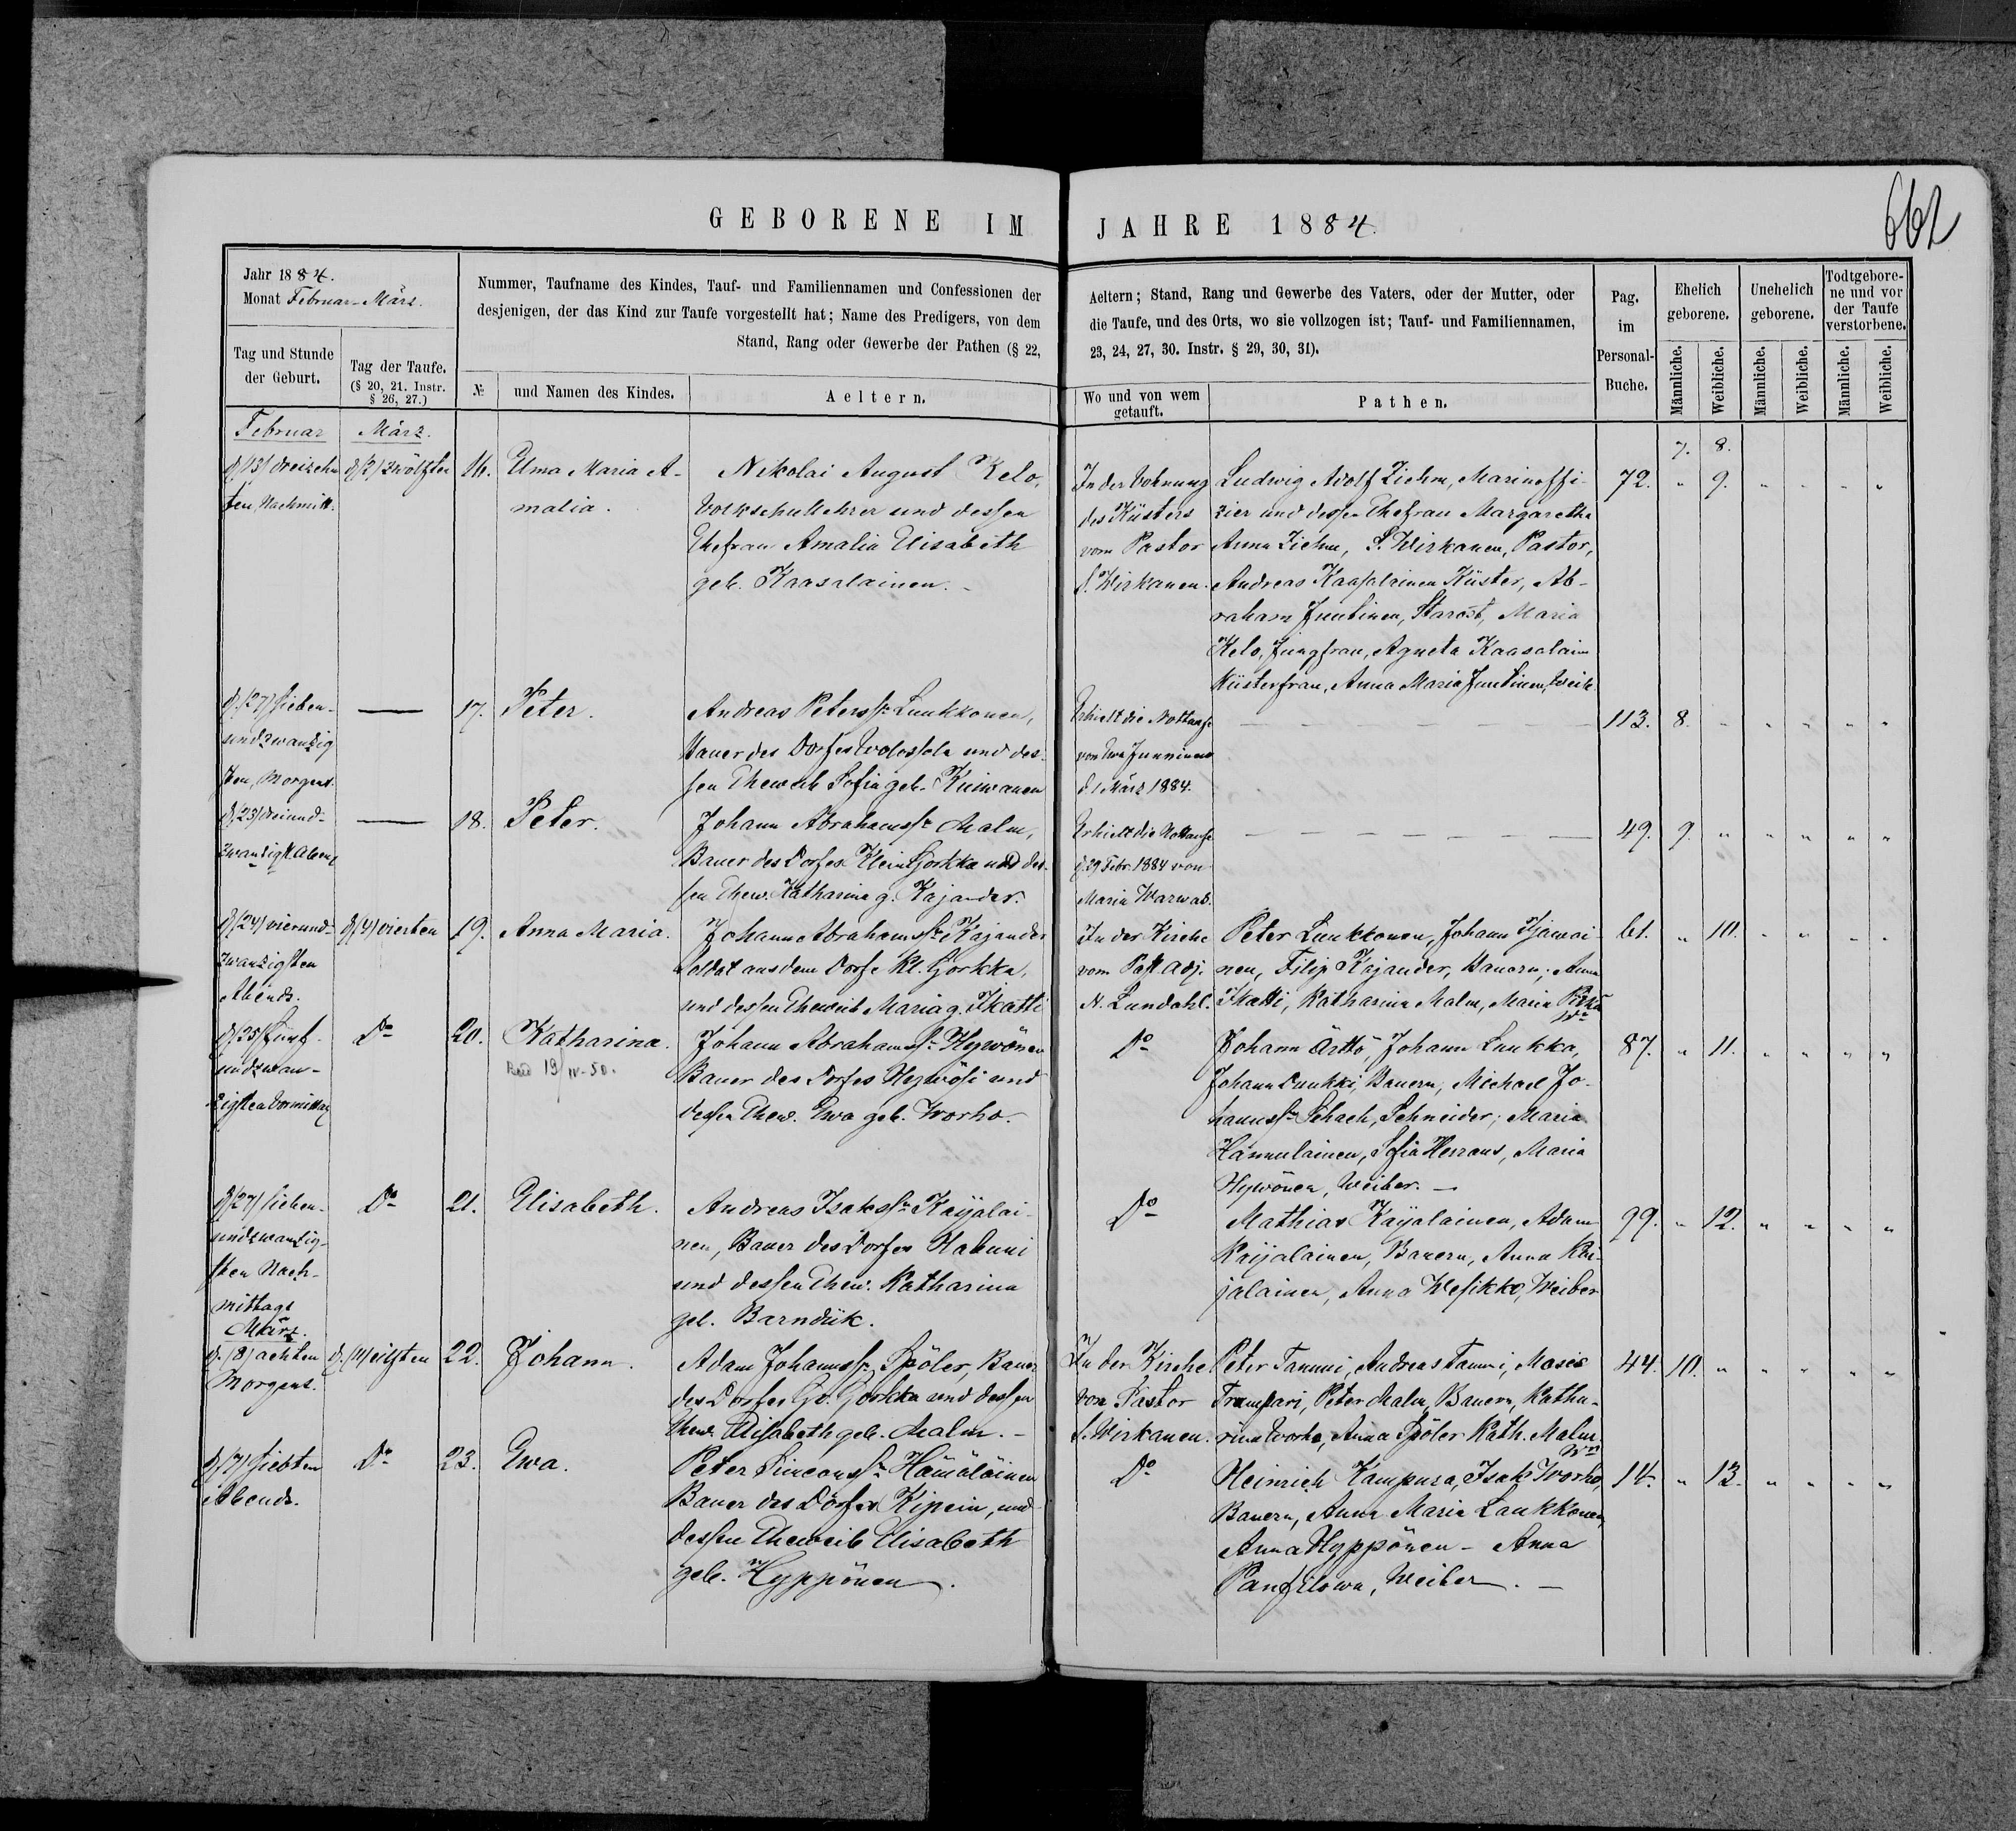 GEBORENE IM JAHRE 1884.
662
Jahr 1884.
Monat Februar-März.
Tag und Stunde
der Geburt.
Tag der Taufe.
(§ 20, 21. Instr.
§ 26, 27.)
Nummer, Taufname des Kindes, Tauf- und Familiennamen und Confessionen der
desjenigen, der das Kind zur Taufe vorgestellt hat; Name des Predigers, von dem
Stand, Rang oder Gewerbe der Pathen (§ 22,
№
und Namen des Kindes.
Aeltern.
Aeltern; Stand, Rang und Gewerbe des Vaters, oder der Mutter, oder
die Taufe, und des Orts, wo sie vollzogen ist; Tauf- und Familiennamen,
23, 24, 27, 30. Instr. § 29, 30, 31).
Wo und von wem
getauft.
Pathen.
Pag.
im
Personal-
Buche.
Ehelich
geborene.
Unehelich
geborene.
Todtgebore-
ne und vor
der Taufe
verstorbene.
Männliche.
Weibliche.
Männliche.
Weibliche.
Männliche.
Weibliche.
Februar
März.
7. 8.
d. (13) dreizehn
ten, Nachmitt.
zwölften
16.
Elma Maria A-
malia.
Nikolai August Kelo,
Volksschullehrer und dessen
Ehefrau Amalia Elisabeth
geb. Kaasalainen.-
In der Wohnung
des Küsters
vom Pastor
S. Wirkanen.
Ludwig Adolf Ziehm, Marinoffi-
zier und dessen Ehefrau Margaretha
Anna Ziehm, S. Wirkanen, Pastor,
Andreas Kaasalainen Küster, Ab-
raham Juntinen, Starost, Maria
Kelo, Jungfrau, Agneta Kaasalain
Küsterfrau, Anna Maria Juntinen, Weib.
72. " 9. " " " "
d. (27) sieben-
undzwanzig
sten, Morgens.
—
17.
Peter.
Andreas Peterss. Luukkonen,
Bauer des Dorfes und des-
sen Eheweib Sofia geb. Kuiwanen
Erhielt die Nottaufe
von Ewa Junninen
d. 1 März 1884.
113. 8. " " " " "
d. (23) dreiund-
zwanzigst. Abens
—
18.
Peter.
Johann Abrahamss. Malm,
Bauer des Dorfes Klein Gorkka und des-
sen Ehew. Katharina g. Kajander.
Erhielt die Nottaufe
d. 29 Febr. 1884 von
Maria Warwas.
49. 9. " " " " "
d. (24) vierund-
zwanzigsten
Abends.
d. (4) vierten
19.
Anna Maria.
Johann Abrahamss. Kajander
Soldat aus dem Dorfe Kl. Gorkka,
und dessen Eheweib Maria g. Ikatti
In der Kirche
vom Past. adj.
N. Lundahl.
Peter Luukkonen, Johann
nen, Filip Kajander, Bauern; Anna
Ikatti, Katharina Malm, Maria
61. " 10. " " " "
d. (25) fünf-
undzwan-
zigsten Vormittag
Do
20.
Katharina.
19/IV-50.
Johann Abrahamss. Hywönen
Bauer des Dorfes Hywösi und
dessen Ehew. Ewa geb. Worho.
Do
Johann Ärttö, Johann Luukka,
Johann Luukki, Bauern; Michael Jo-
hannss. Schach, Schneider; Maria
Hannulainen, Sofia Herrans, Maria
Hywönen, Weiber. —
87. " 11. " " " "
d. (27) sieben-
undzwanzig-
sten Nach-
mittags
Do
21.
Elisabeth.
Andreas Isakss. Kaijalai-
nen, Bauer des Dorfes Habuni
und dessen Ehew. Katharina
geb. Barndük.
Do
Mathias Kaijalainen, Adam
Kaijalainen, Bauern, Anna Kai-
jalainen, Anna Wesikko, Weiber
99. " 12. " " " "
März.
d. (8) achten
Morgens.
d. (11) eilften
22.
Johann.
Adam Johannss. Spöler, Bauer
des Dorfes Gr. Gorkka und dessen
Ehew. Elisabeth geb. Malm. -
In der Kirche
von Pastor
S. Wirkanen.
Peter Tammi, Andreas Tammi, Moses
Trumpari, Peter Malm, Bauern, Katha-
rina Worho, Anna Spöler Kath. Malm.
44. 10. " " " " "
d. (7) siebten
Abends.
Do
23.
Ewa.
Peter Simeonss. Hämäläinen
Bauer des Dorfes Kipein, und
dessen Eheweib Elisabeth
geb. Hyppönen.
Do
Heinrich Kampura, Isak Worho,
Bauern, Anna Maria Laukkonen,
Anna Hyppönen - Anna
Panfilowa, Weiber. —
14. " 13. " " " "